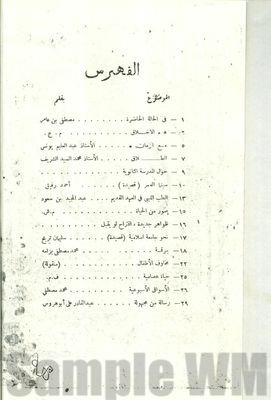 الفهرس
الموضوع بقلم
١ — في الحالة الحاضرة . . . . . . . . مصطفى بن عامر
٣ — ٥ الاخلاق . . . . . . . . م . ع .
٥ — مع الزمان . . . . . . الأستاذ عبد العليم يونس
٧ — الطلاق . . . . الأستاذ محمد السيد الشريف
٩ — حول المدرسة الثانوية . . . . . . .
١٠ — سينا العمر ( قصيدة ) . . . . . أحمد رفيق
١٣ — الطب النبي في العهد القديم . . عبد الحميد بن سعود
١٥ — صور من الحياة . . . . . . . . م . ص .
١٦ — ظواهر جديدة ، اقتراح لو يقبل . . . . .
١٧ — نحو جامعة اسلامية ( قصيدة ) . . . سليمان تربح
١٨ — برقية . . . . . . . . محمد مصطفى بزامه
٢٢ — مخاوف الأطفال . . . . . . . ( منقولة )
٢٥ — حياة عصامية . . . . . . . . ف . م .
٢٨ — الأسواق الأسبوعية . . . . . محمد مصطفى
٢٩ — رسالة من مجهولة . . . . عبد القادر على أبو هروس
Sample WM